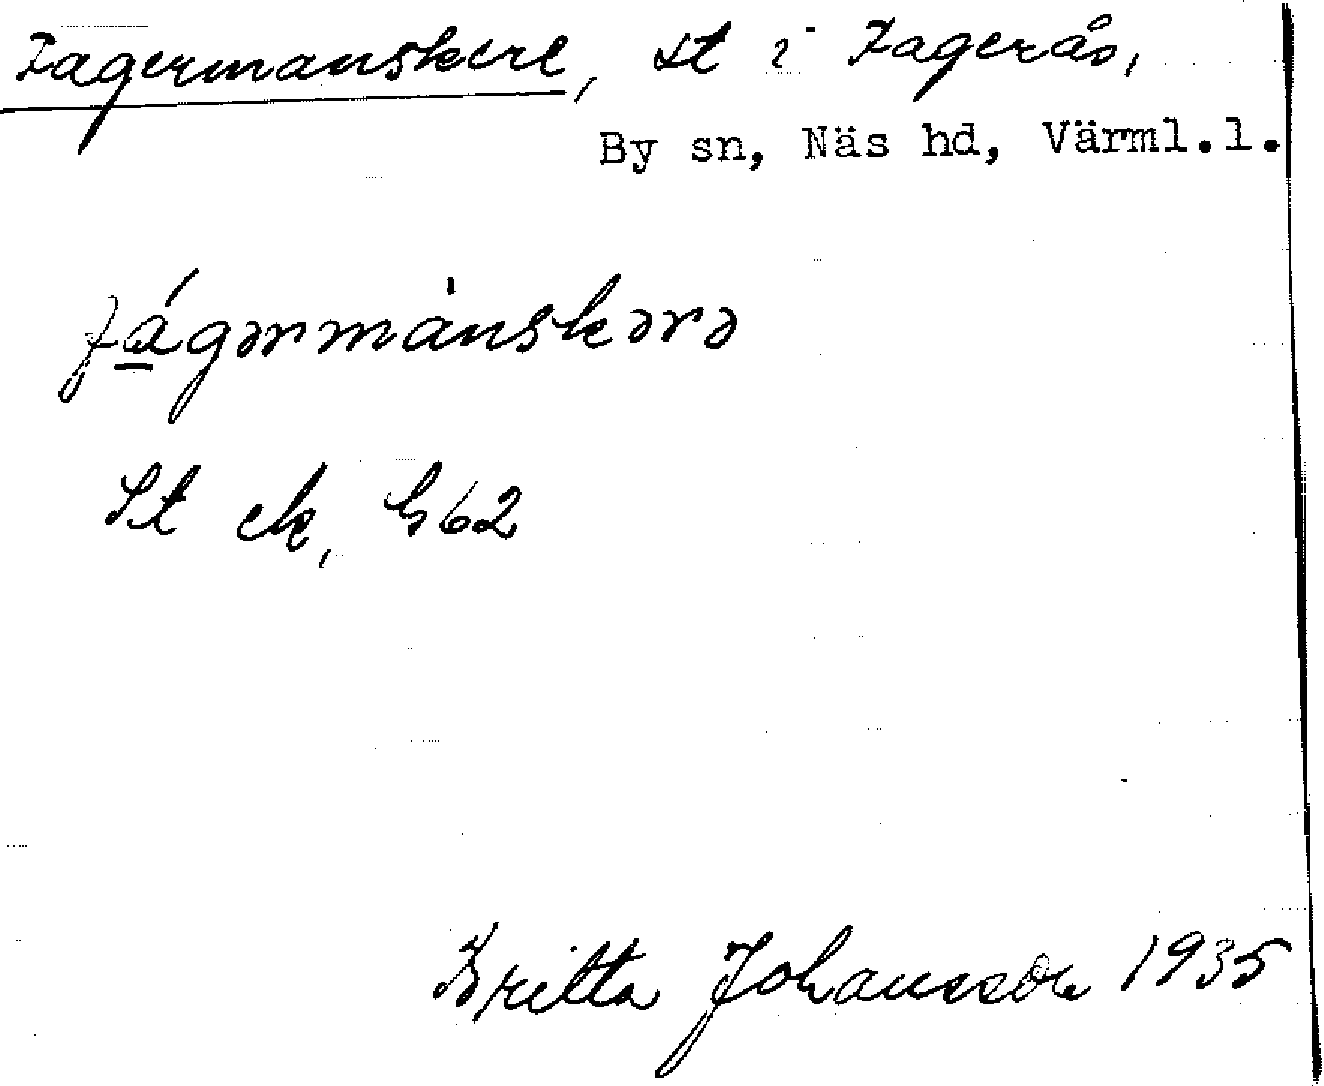 Fagermanskere, st i Fagerås,
By sn, Näs hd, Värml.l.
fágərmànskərə
St ek, G62
Britta Johansson 1935